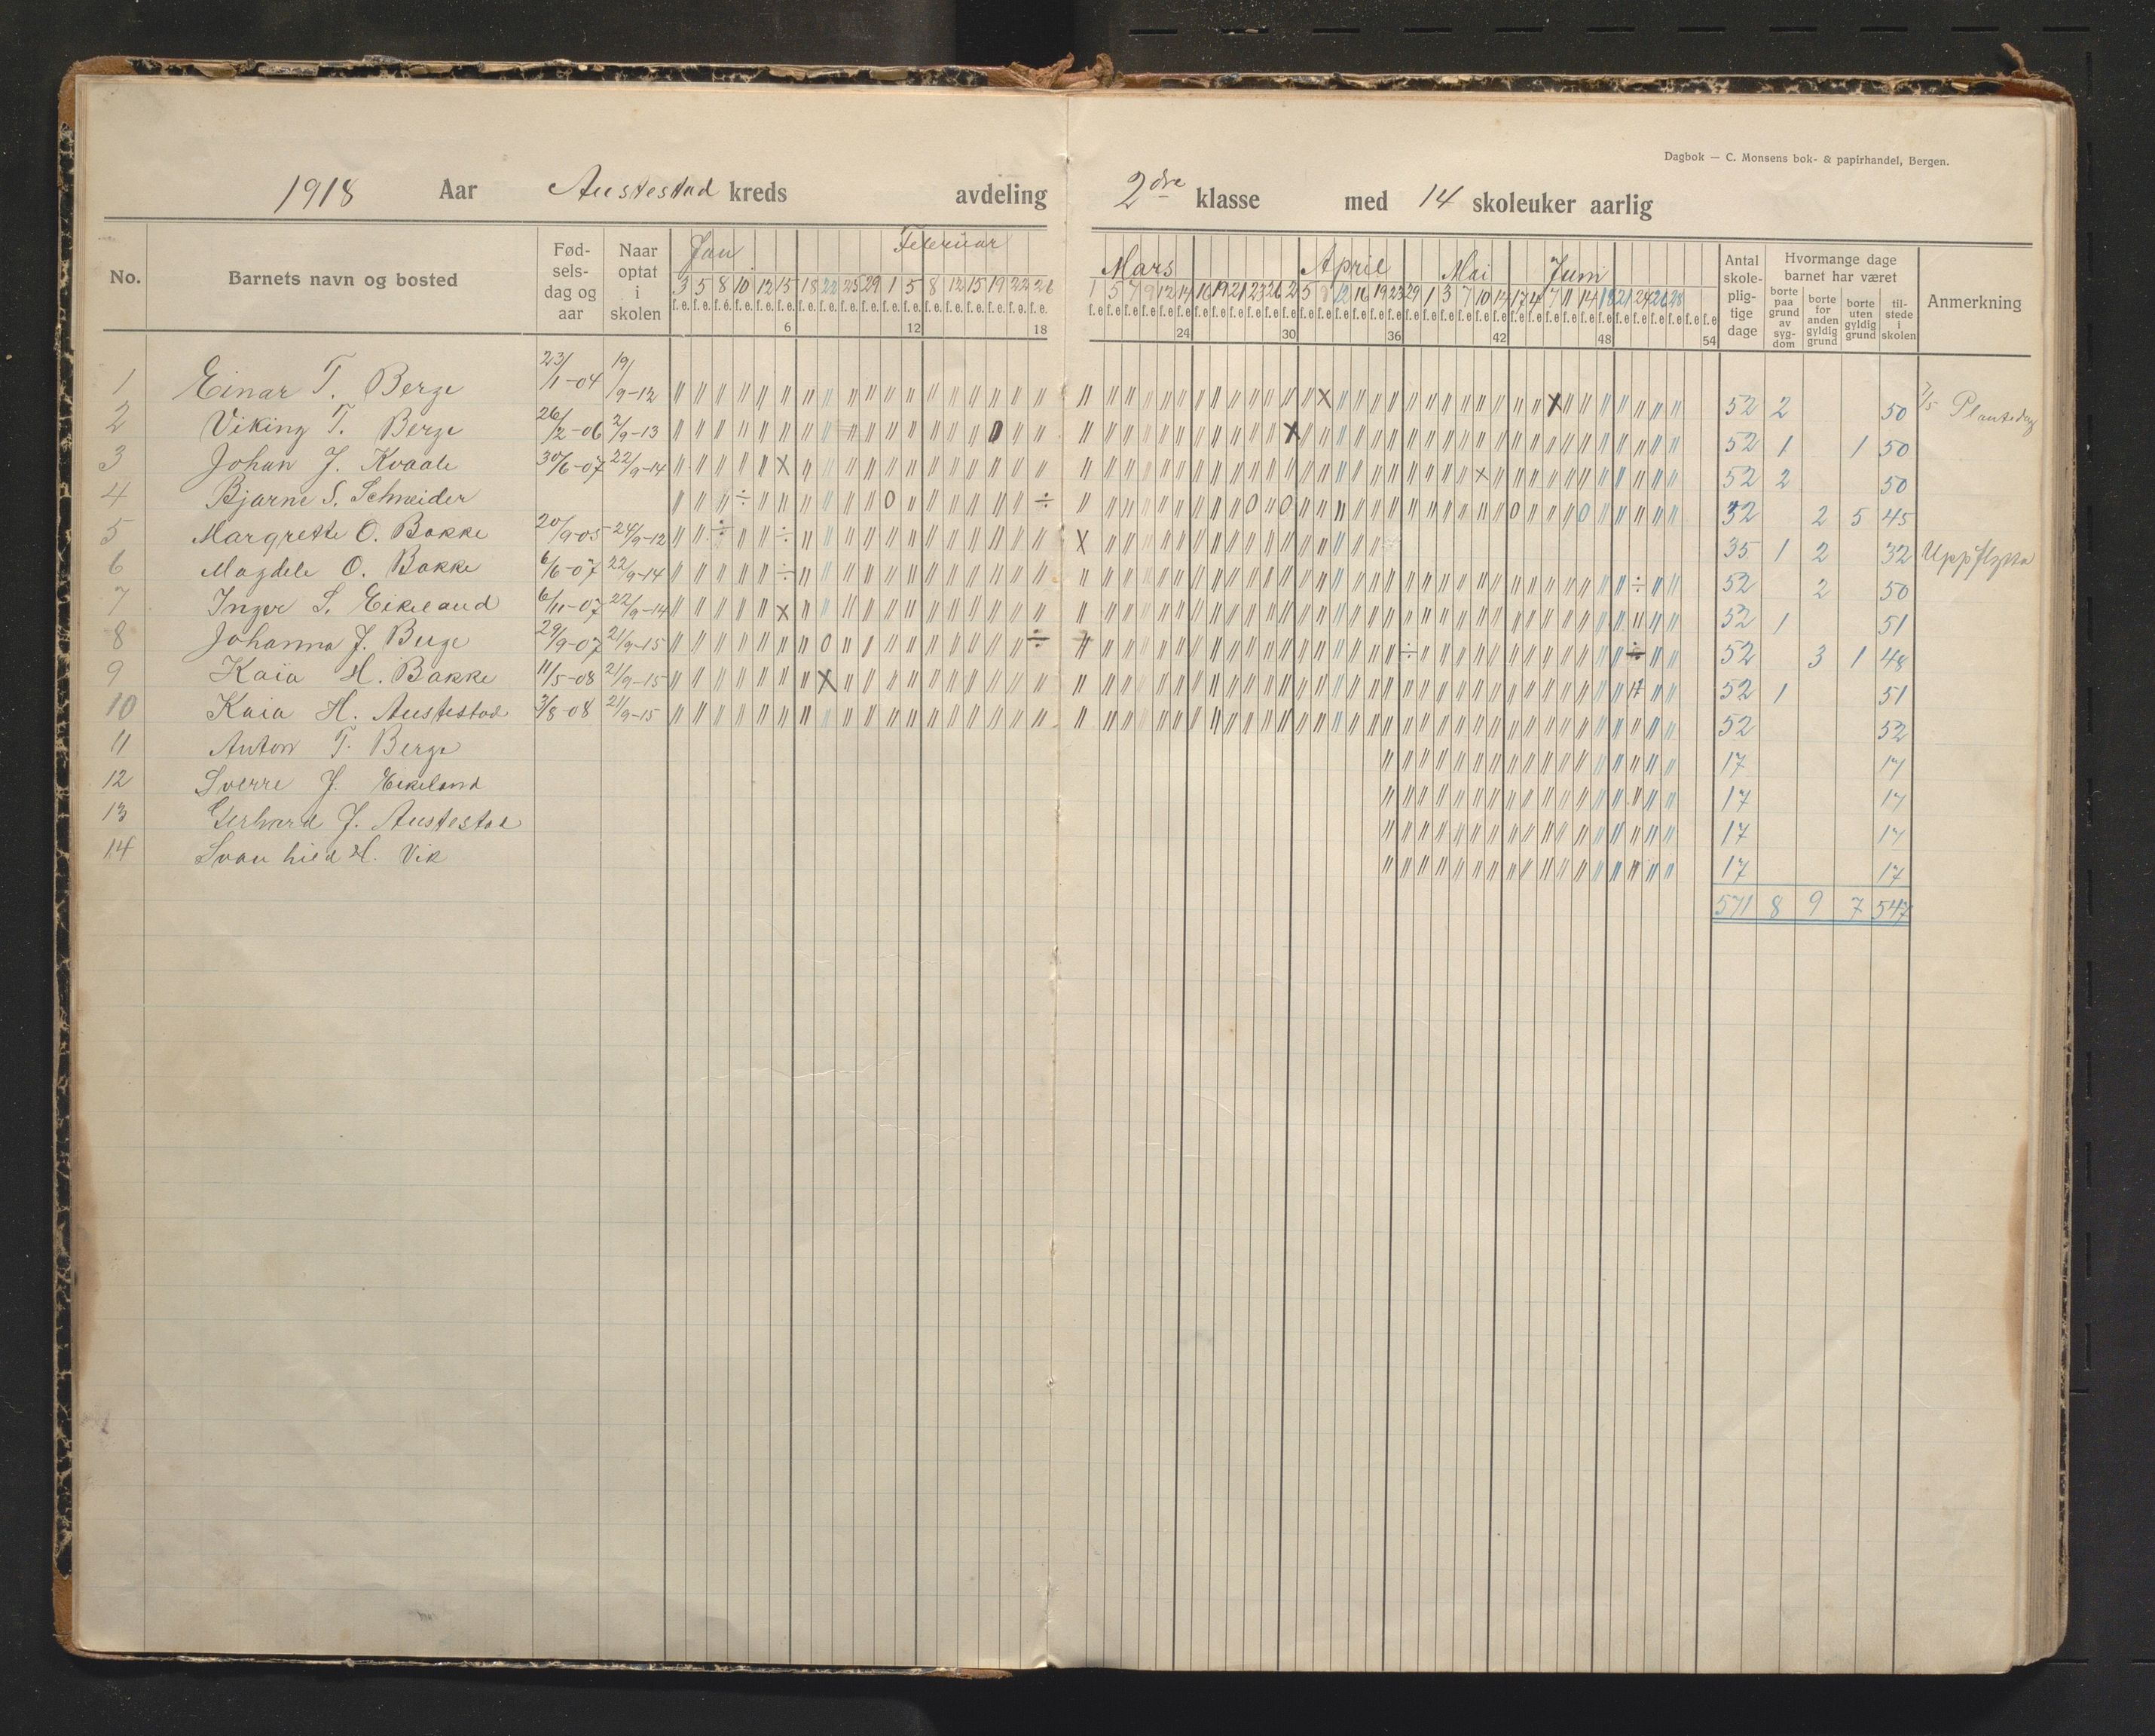 Dagbok — C. Monsens bok- & papirhandel, Bergen.
1918 Aar Austestad kreds avdeling 2dre klasse med 14 skoleuker aarlig
No. Barnets navn og bosted Fød-sels-dag og aar Naar optat i skolen Jan Februar Mars April Mai Juni Antal skole-plig-tige dage Hvormange dage barnet har været Anmerkning
borte paa grund av syg-dom borte for anden gyldig grund borte uten gyldig grund til-stede i skolen
3 5 8 10 12 15 18 22 25 29 1 5 8 12 15 19 22 26 1 5 7 9 12 14 16 19 21 23 26 2 5 8 12 16 19 23 29 1 3 7 10 14 17 4 7 11 14 18 21 24 26 28
6 12 18 24 30 36 42 48 54
1 Einar T. Berge 23/11-04 19/9-12 52 2 50 7/5 Plantedag
2 Viking T. Berge 26/2-06 2/9-13 52 1 1 50
3 Johan J. Kvaale 30/6-07 22/9-14 52 2 50
4 Bjarne S. Schneider 52 2 5 45
5 Margrethe O. Bakke 20/9-05 24/9-12 35 1 2 32 Uppflytta
6 Magdele O. Bakke 6/6-07 22/9-14 52 2 50
7 Inger S. Eikeland 6/11-07 22/9-14 52 1 51
8 Johanna J. Berge 29/9-07 21/9-15 52 3 1 48
9 Kaia H. Bakke 11/5-08 21/9-15 52 1 51
10 Kaia H. Austestad 3/8-08 21/9-15 52 52
11 Anton T. Berge 17 17
12 Sverre J. Eikeland 17 17
13 Gerhard J. Austestad 17 17
14 Svanhild H. Vik 17 17
571 8 9 7 547